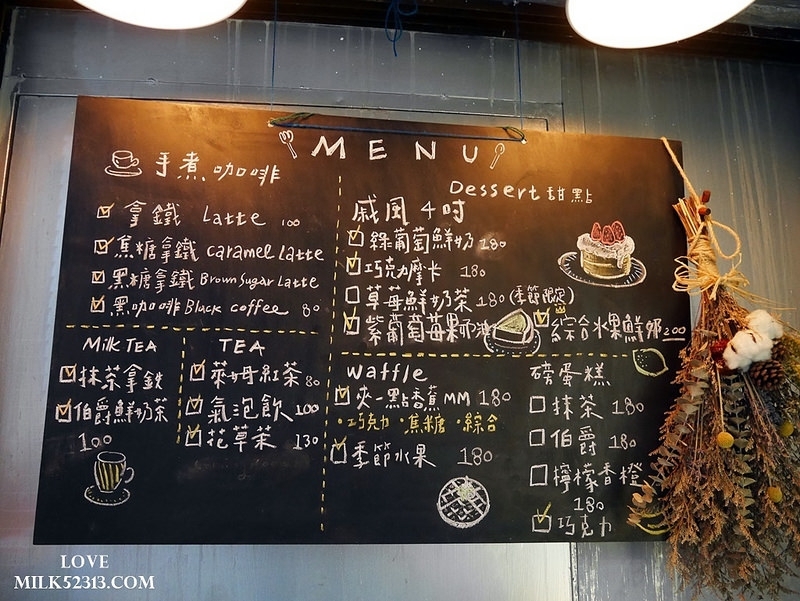 MENU
手煮咖啡
拿鐵 Latte 100
焦糖拿鐵 caramel Latte
黑糖拿鐵 Brown Sugar Latte
黑咖啡 Black coffee 80
MILK TEA
抹茶拿鉄
伯爵鮮奶茶
100
TEA
萊姆紅茶 80
氣泡飲 100
花草茶 130
Dessert 甜點
戚風 4吋
綠葡萄鮮奶 180
巧克力摩卡 180
草莓鮮奶茶 180 (季節限定)
紫葡萄莓果
綜合水果鮮奶 200
Waffle
夾一點香蕉 MM 180
・巧克力 ・焦糖 ・綜合
季節水果 180
磅蛋糕
抹茶 180
伯爵 180
檸檬香橙
180
巧克力
LOVE
MILK52313.COM